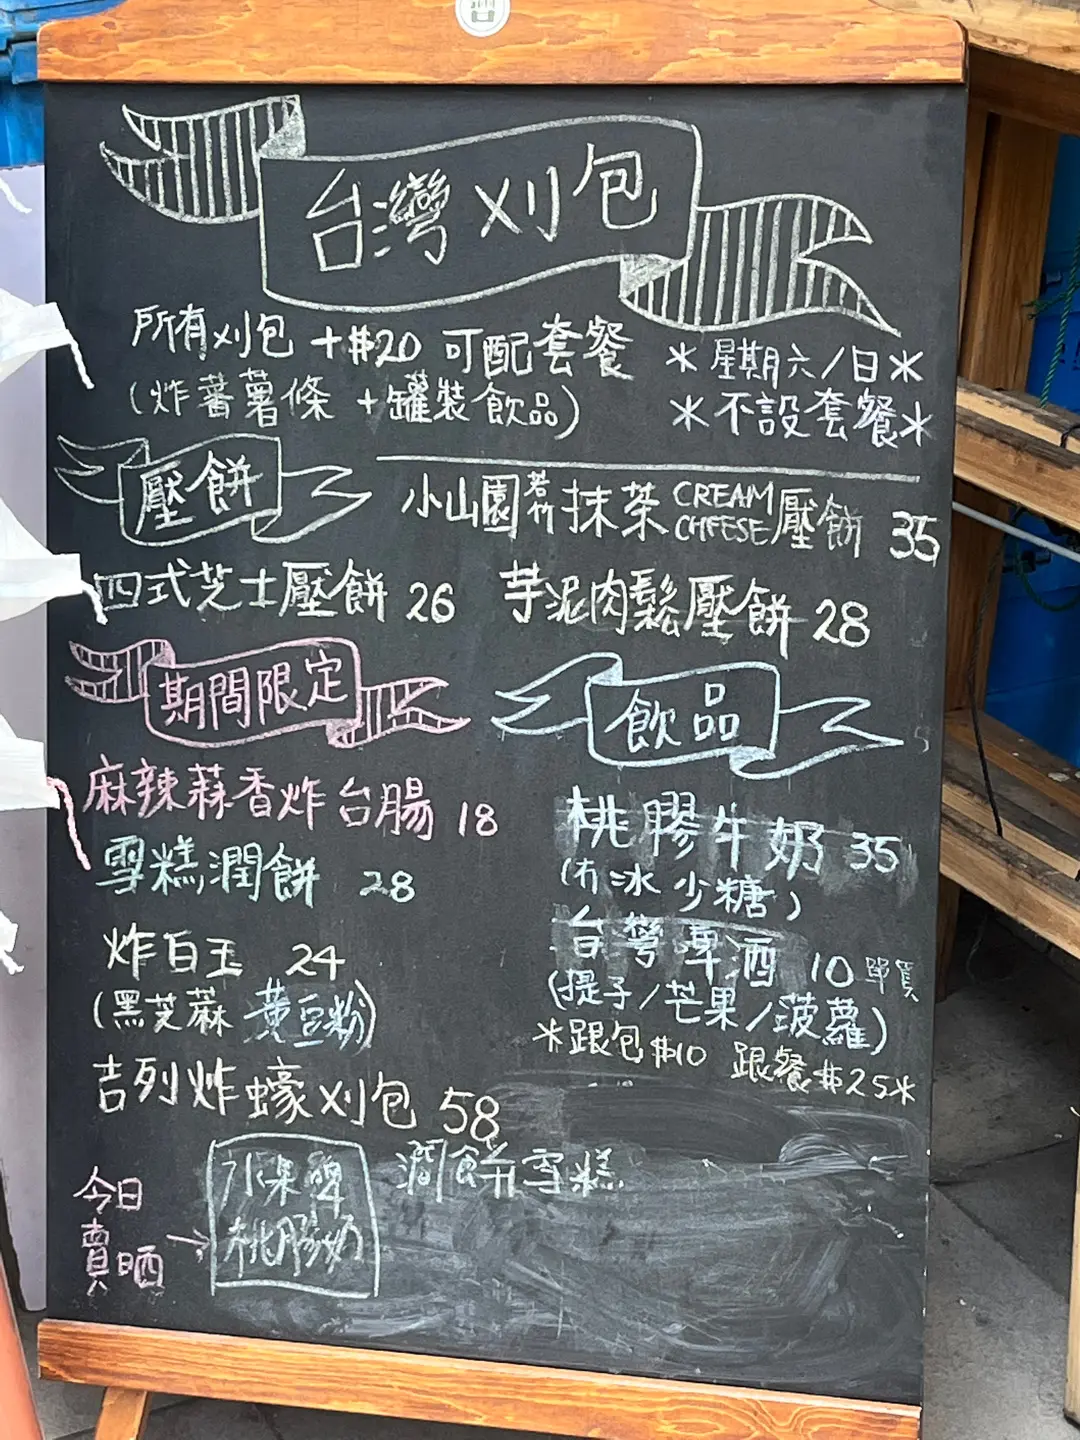 台灣刈包
所有刈包 +$20 可配套餐
(炸蕃薯條 +罐裝飲品)
*星期六/日*
*不設套餐*
壓餅
小山園若竹抹茶CREAM CHEESE壓餅 35
四式芝士壓餅 26
芋泥肉鬆壓餅 28
期間限定
麻辣蒜香炸台腸 18
雪糕潤餅 28
炸白玉 24
(黑芝蔴 黃豆粉)
吉列炸蠔刈包 58
飲品
桃膠牛奶 35
(冇冰 少糖)
台灣啤酒 10 單買
(提子/芒果/菠蘿)
*跟包$10 跟餐$25*
今日賣晒→
水果啤
桃膠奶
潤餅雪糕